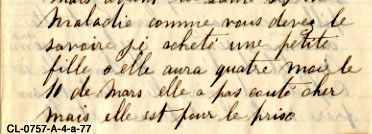 maladie comme vous devez le
savoire j'ai acheté une petite
fille elle aura quatre mois le
10 de mars elle a pas couté cher
mais elle est pour le prix
CL-0757-A-4-a-77